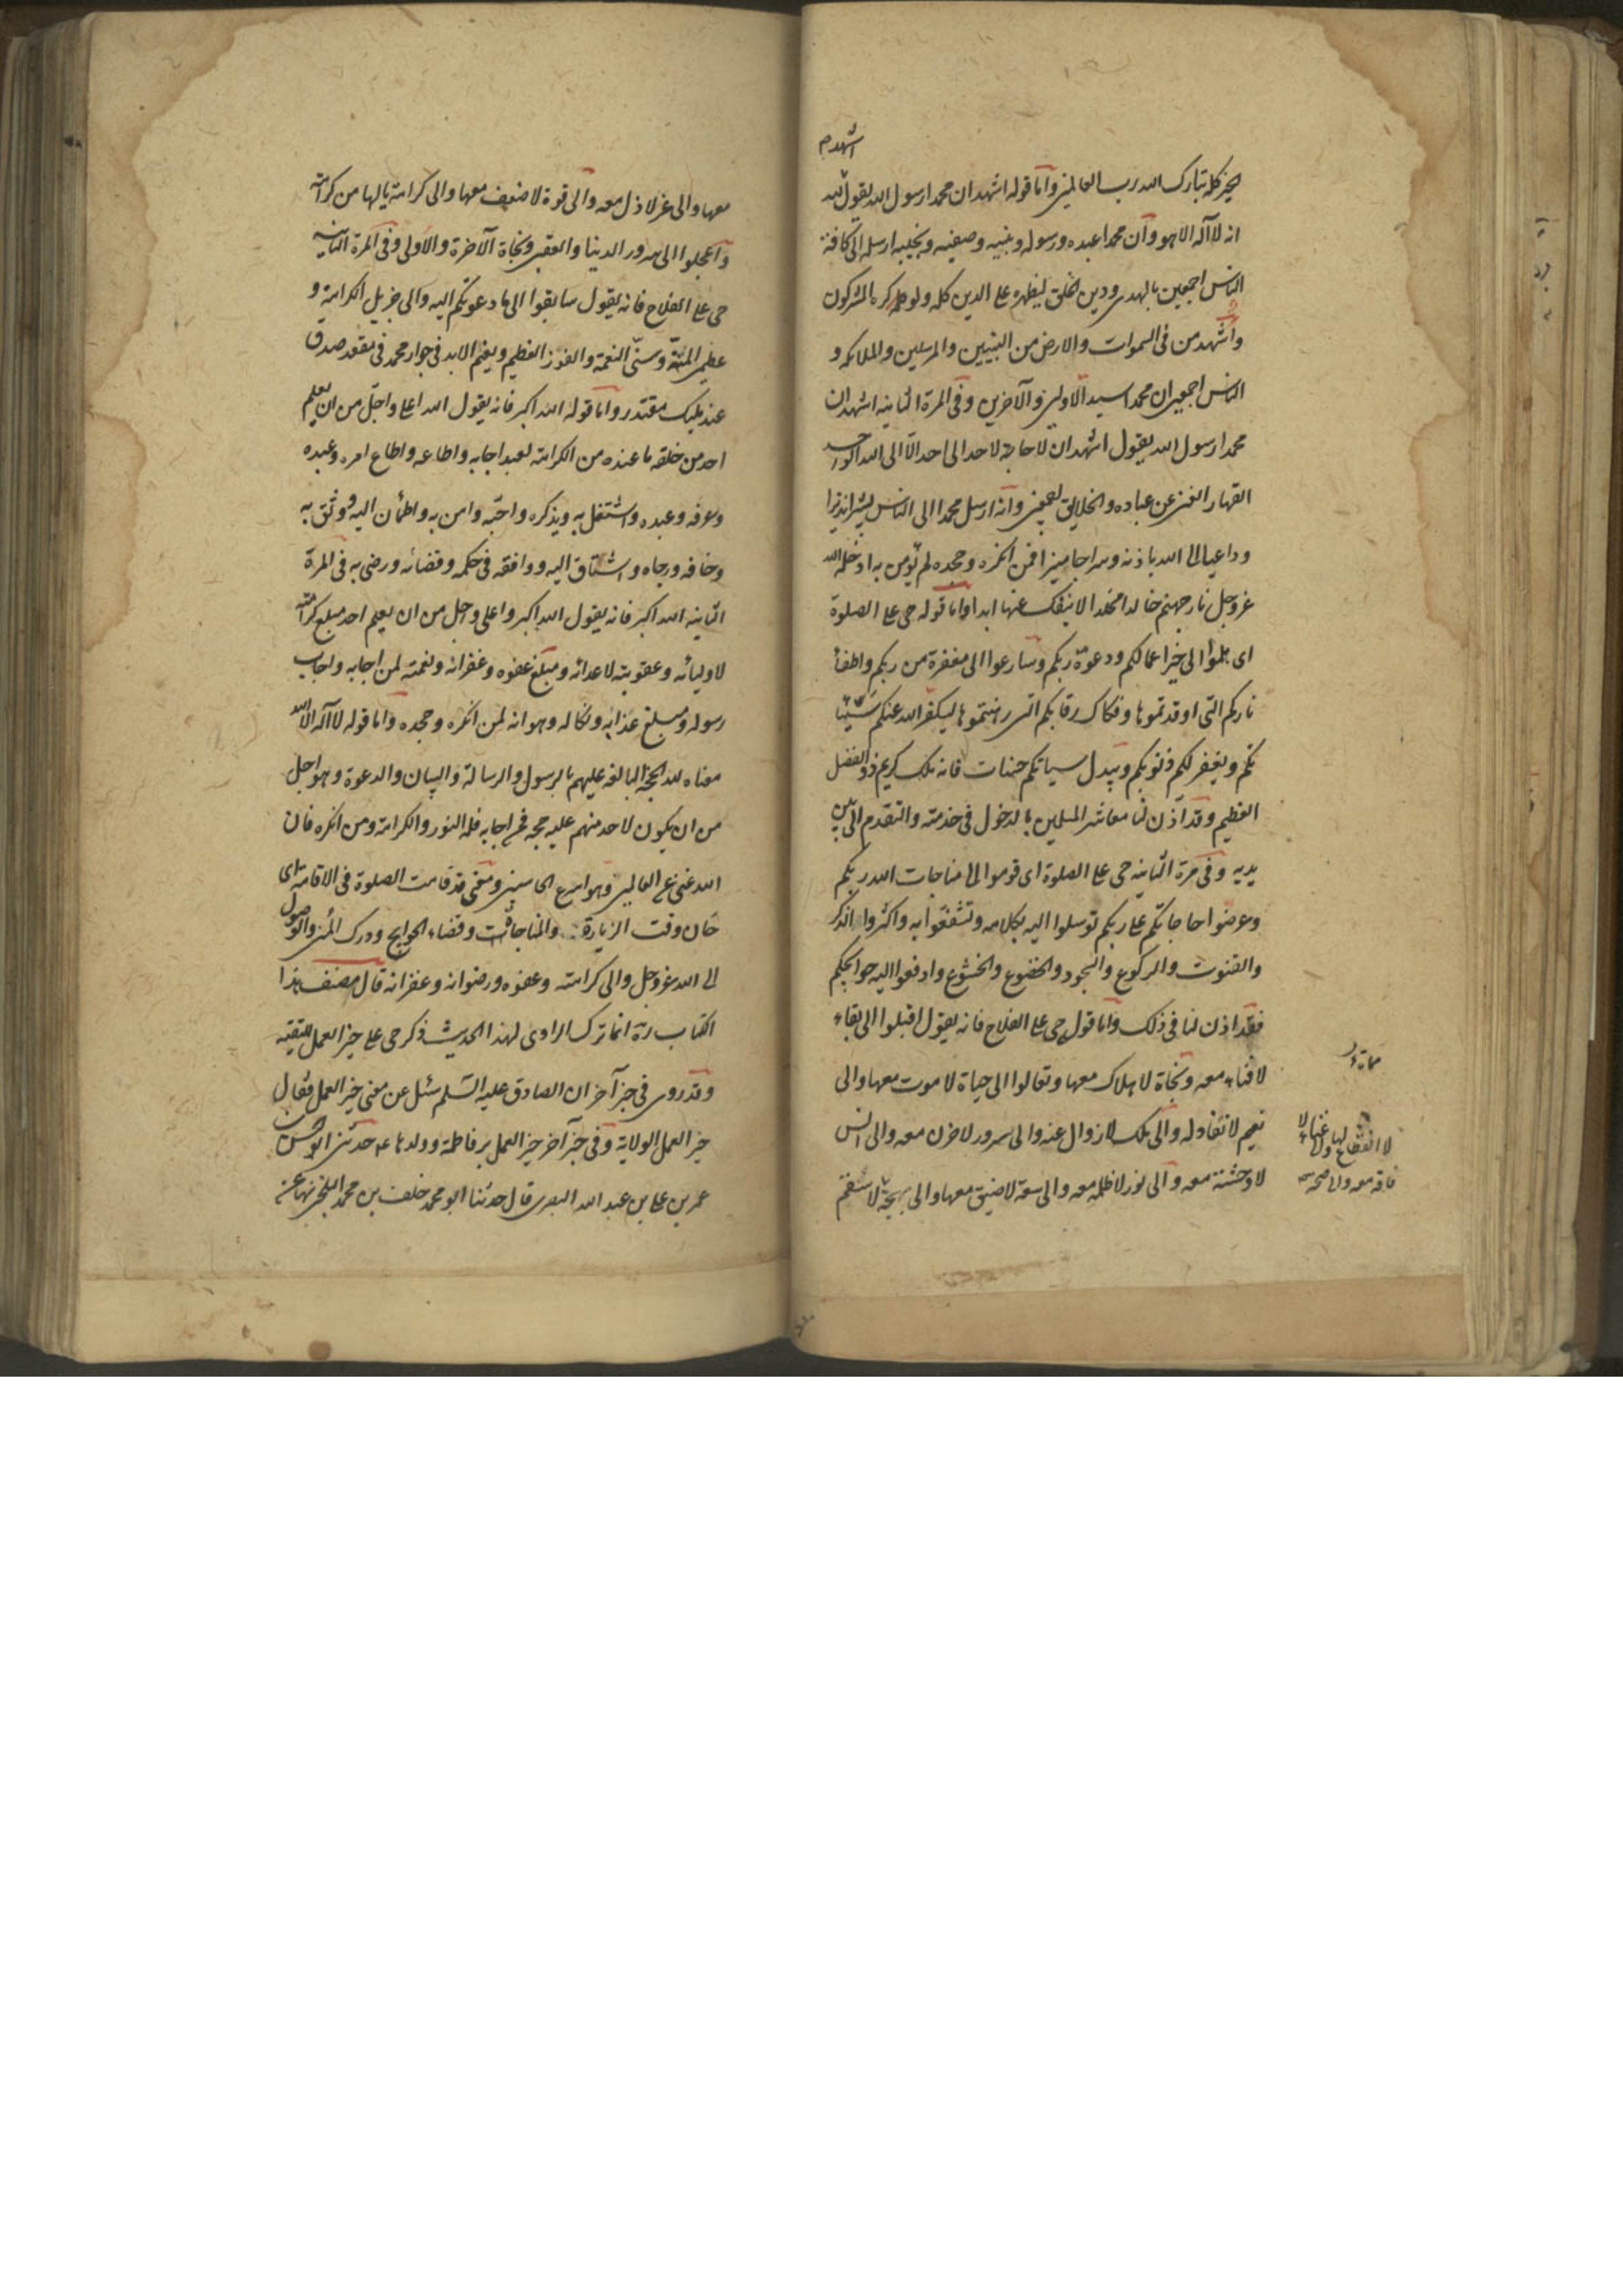 اشهد م
الخير كله تبارك الله رب العالمين واما قوله اشهد ان محمدا رسول الله يقول لله
انه لا اله الا هو وان محمدا عبده ورسوله ونبيه وصفيه ونجيبه ارسله الى كافة
الناس اجمعين بالهدى ودين الحق ليظهره على الدين كله ولو كره المشركون
واشهد من فى السموات والارض من النبيين والمرسلين والملائكه و
الناس اجمعين ان محمدا سيد الاولين والآخرين وفى المرة الثانيه اشهد ان
محمدا رسول الله يقول اشهد ان لا حاجة لاحد الى احد الا الى الله الواحد
القهار الغنى عن عباده والخلايق اجمعين وانه ارسل محمدا الى الناس بشيرا نذيرا
وداعيا الى الله باذنه وسراجا منيرا فمن انكره وجحده لم يؤمن به ادخله الله
عز وجل نار جهنم خالدا مخلدا لا ينفك عنها ابدا واما قوله حى على الصلوة
اى هلموا الى خير اعمالكم ودعوة ربكم وسارعوا الى مغفرة من ربكم واطفأ
ناركم التى اوقدتموها وفكاك رقابكم التى رهنتموها ليكفر الله عنكم سيئا
تكم ويغفر لكم ذنوبكم ويبدل سياتكم حسنات فانه ملك كريم ذو الفضل
العظيم وقد اذن لنا معاشر المسلمين بالدخول فى خدمته والتقدم الى بين
يديه وفى مرة الثانيه حى على الصلوة اى قوموا الى مناجات الله ربكم
وعرضوا حاجاتكم على ربكم توسلوا اليه بكلامه وتشفعوا به واكثروا الذكر
والقنوت والركوع والسجود والخضوع والخشوع وادفعوا اليه حوايجكم
فقد اذن لنا فى ذلك واما قول حى على الفلاح فانه يقول اقبلوا الى بقاء
لا فناء معه ونجاة لا هلاك معها وتعالوا الى حياة لا موت معها والى
نعيم لا نفاد له والى ملك لا زوال عنه والى سرور لا حزن معه والى انس
لا وحشة معه والى نور لا ظلمة معه والى سعة لا ضيق معها والى بهجة لا
لا انقطاع لها ولغناء لا
فاقه معه والى صحة
معها والى عز لا ذل معه والى قوة لا ضعف معها والى كرامة يا لها من كرامة
واعجلوا الى سرور الدينا والعقبى ونجاة الآخرة والاولى وفى المرة الثانيه
حى على الفلاح فانه يقول سابقوا الى ما دعوتكم اليه والى جزيل الكرامة و
عظيم المنة وسنى النعمة والفوز العظيم ونعيم الابد فى جوار محمد فى مقعد صدق
عند مليك مقتدر واما قوله الله اكبر فانه يقول الله اعلى واجل من ان يعلم
احد من خلقه ما عنده من الكرامة لعبد اجابه واطاعه واطاع امره وعبده
وعرفه وعبده واشتغل به وبذكره واحبه وامن به واطمأن اليه ووثق به
وخافه ورجاه واشتاق اليه ووافقه فى حكمه وقضائه ورضى به فى المرة
الثانيه الله اكبر فانه يقول الله اكبر واعلى وجل من ان يعلم احد مبلغ كرامته
لاوليائه وعقوبته لاعدائه ومبلغ عفوه وغفرانه ونعمته لمن اجابه واجاب
رسوله ومبلغ عذابه ونكاله وهوانه لمن انكره وجحده واما قوله لا اله الا الله
معناه لله الحجة البالغه عليهم بالرسول والرسالة والبيان والدعوة وهو اجل
من ان يكون لاحد منهم عليه حجه فمن اجابه فله النور والكرامة ومن انكره فان
الله غنى عن العالمين وهو اسرع الحاسبين ومعنى قد قامت الصلوة فى الاقامة اى
حان وقت الزيارة والمناجات وقضاء الحوايج ودرك المنى والوصول
الى الله عز وجل والى كرامته وعفوه ورضوانه وغفرانه قال مصنف هذا
الكتاب ره انما ترك الراوى لهذا الحديث ذكر حى على خير العمل للتقيه
وقد روى فى خبر آخر ان الصادق عليه السلم سئل عن معنى خير العمل فقال
خير العمل الولاية وفى خبر آخر خير العمل بر فاطمة وولدها ع حدثنى ابو الحسن
عمر بن على بن عبد الله البصرى قال حدثنا ابو محمد خلف بن محمد البلخى بها عن